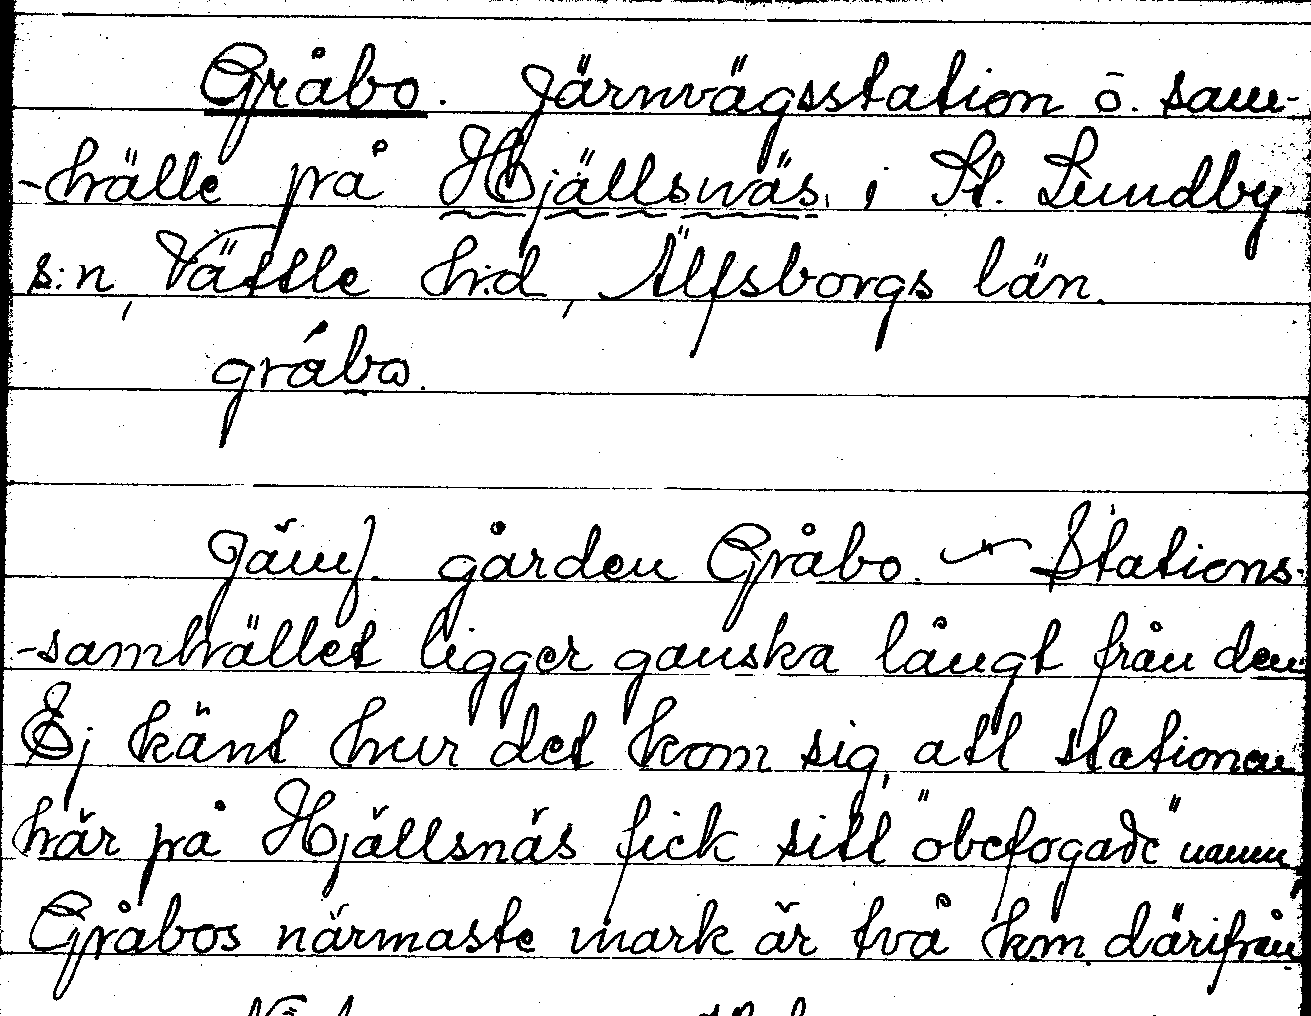 Gråbo. Järnvägsstation o. sam-
-hälle på Hjällsnäs, i St. Lundby
s:n, Vättle h:d, Älfsborgs län.
gråbo.
Jämf. gården Gråbo. — Stations-
-samhället ligger ganska långt från den.
Ej känt hur det kom sig, att stationen
här på Hjällsnäs fick sitt "obefogade" namn.
Gråbos närmaste mark är två km. därifrån.